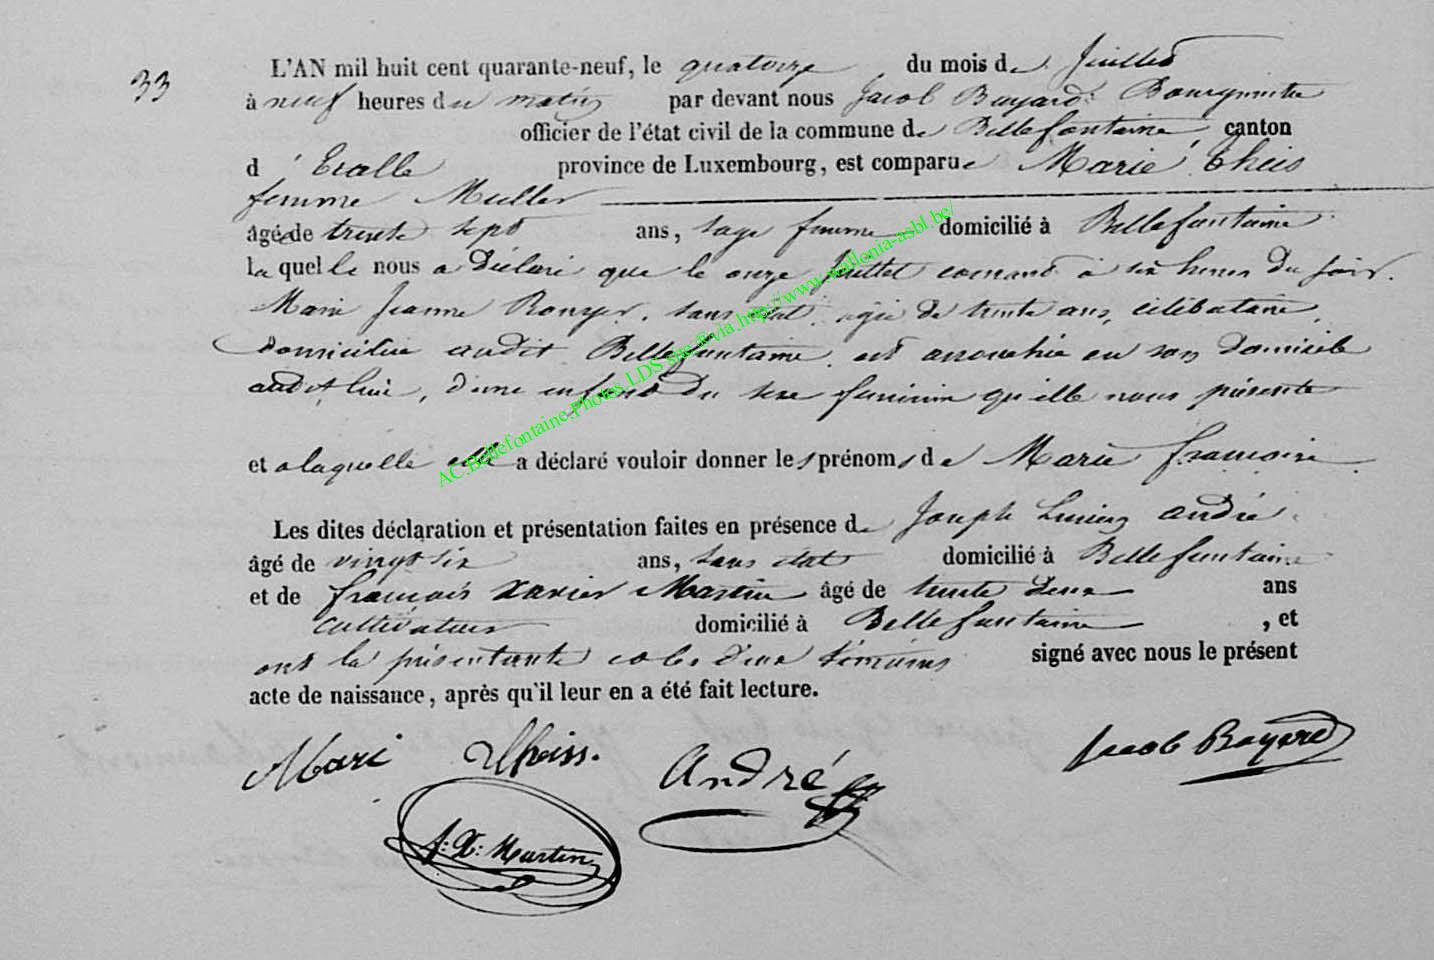 33
L'AN mil huit cent quarante-neuf, le quatorze du mois de Juillet
à neuf heures du matin par devant nous Jacob Bayard Bourgmestre
officier de l'état civil de la commune de Bellefontaine canton
d'Etalle province de Luxembourg, est comparue Marie Theis
femme Muller
âgée de trente sept ans, sage femme domicilié à Bellefontaine
laquelle nous a déclaré que le onze Juillet courant à six heures du soir,
Marie Jeanne Ronger, sans état, agée de trente ans, célibataire,
domiciliée audit Bellefontaine est accouchée en son domicile
audit lieu, d'une enfant du sexe feminin qu'elle nous présente
et a laquelle elle a déclaré vouloir donner les prénoms de Marie françoise
Les dites déclaration et présentation faites en présence de Joseph Lucien André
âgé de vingt six ans, sans état domicilié à Bellefontaine
et de françois Xavier Martin âgé de trente deux ans
cultivateur domicilié à Bellefontaine, et
ont la présentante et les deux témoins signé avec nous le présent
acte de naissance, après qu'il leur en a été fait lecture.
Mari Theiss. André Jacob Bayard
f: X: Martin
AC.Bellefontaine.Photos.LDS.site.&via.http://www.wallonia-asbl.be/